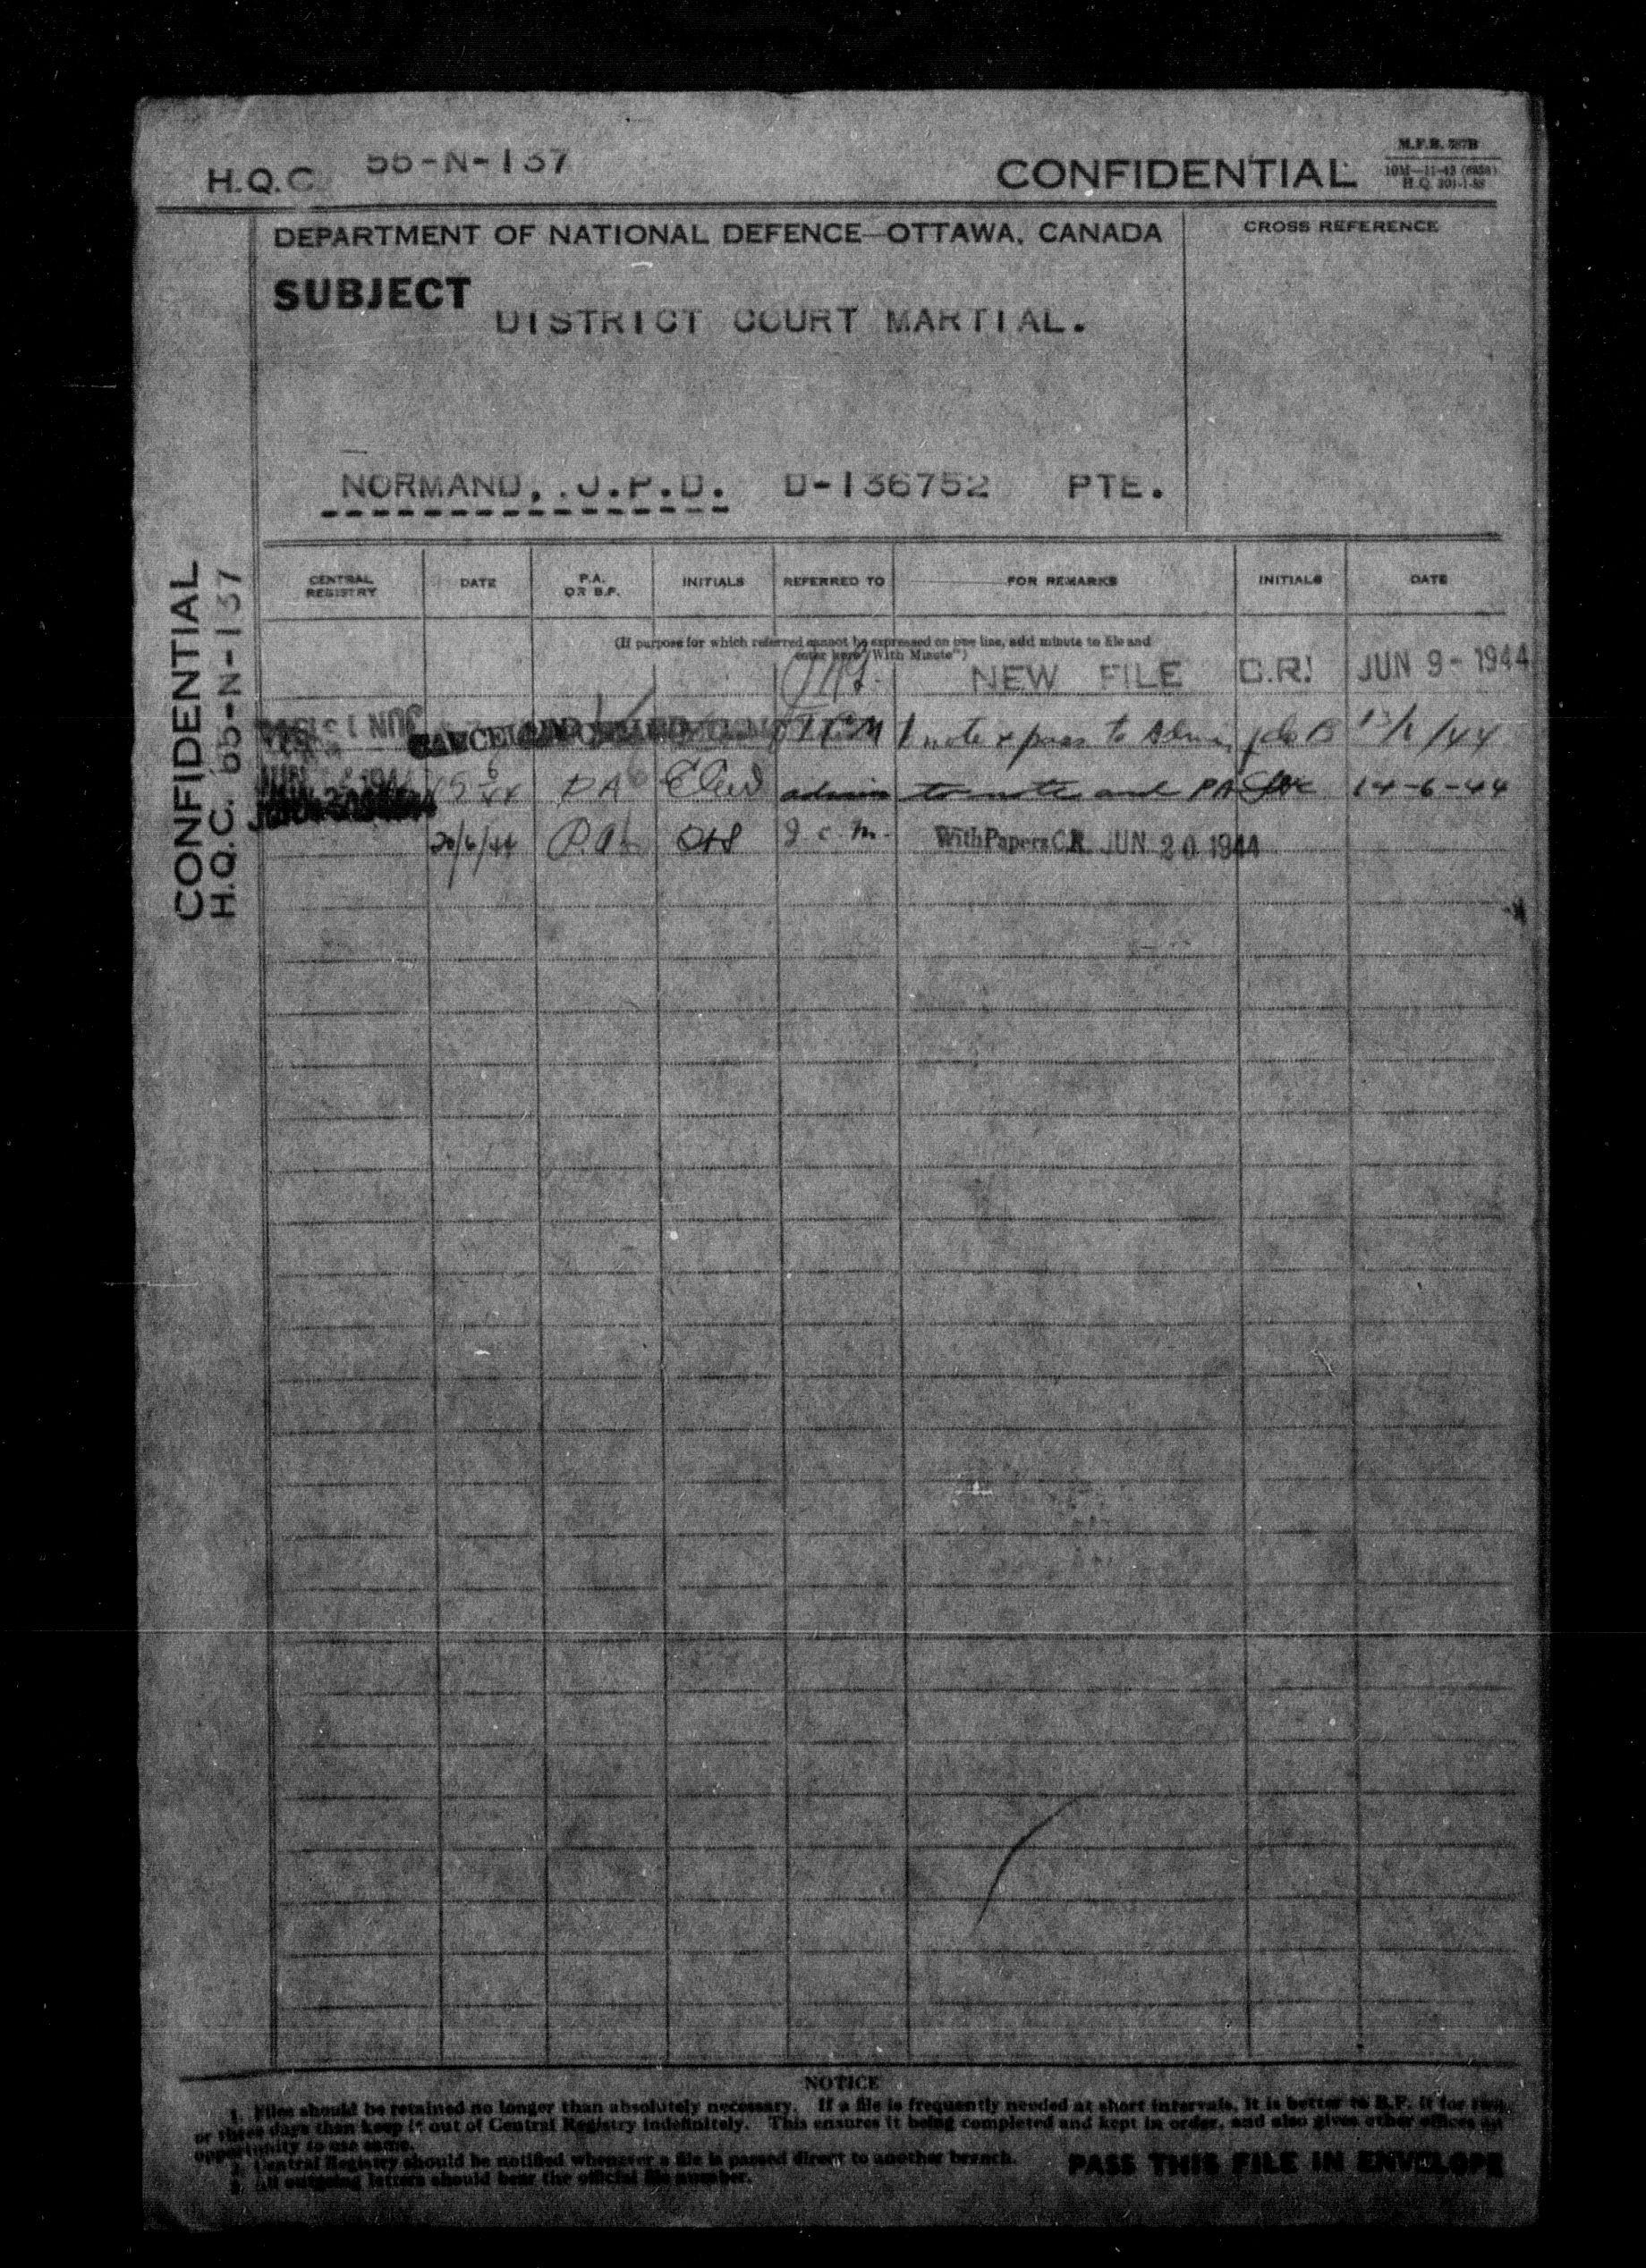 H.Q.C. 55-N-137
CONFIDENTIAL
M.F.B. 287B
H.Q. 301-1-88
DEPARTMENT OF NATIONAL DEFENCE—OTTAWA, CANADA
CROSS REFERENCE
SUBJECT
DISTRICT COURT MARTIAL.
NORMAND, J.P.D. D-136752 PTE.
CONFIDENTIAL
H.Q.C. 55-N-137
CENTRAL REGISTRY DATE P.A. OR B.F. INITIALS REFERRED TO FOR REMARKS INITIALS DATE
(If purpose for which referred cannot be expressed on one line, add minute to file and
enter here "With Minute")
NEW FILE C.R. JUN 9 - 1944
note & pass to Admin
PA admin to note and PA 14-6-44
20/6/44 P.A. With Papers C.R. JUN 20 1944
NOTICE
1. Files should be retained no longer than absolutely necessary. If a file is frequently needed at short intervals, it is better to B.F. it for two
or three days than keep it out of Central Registry indefinitely. This ensures it being completed and kept in order, and also gives other offices an
opportunity to use same.
2. Central Registry should be notified whenever a file is passed direct to another branch.
3. All outgoing letters should bear the official file number.
PASS THIS FILE IN ENVELOPE